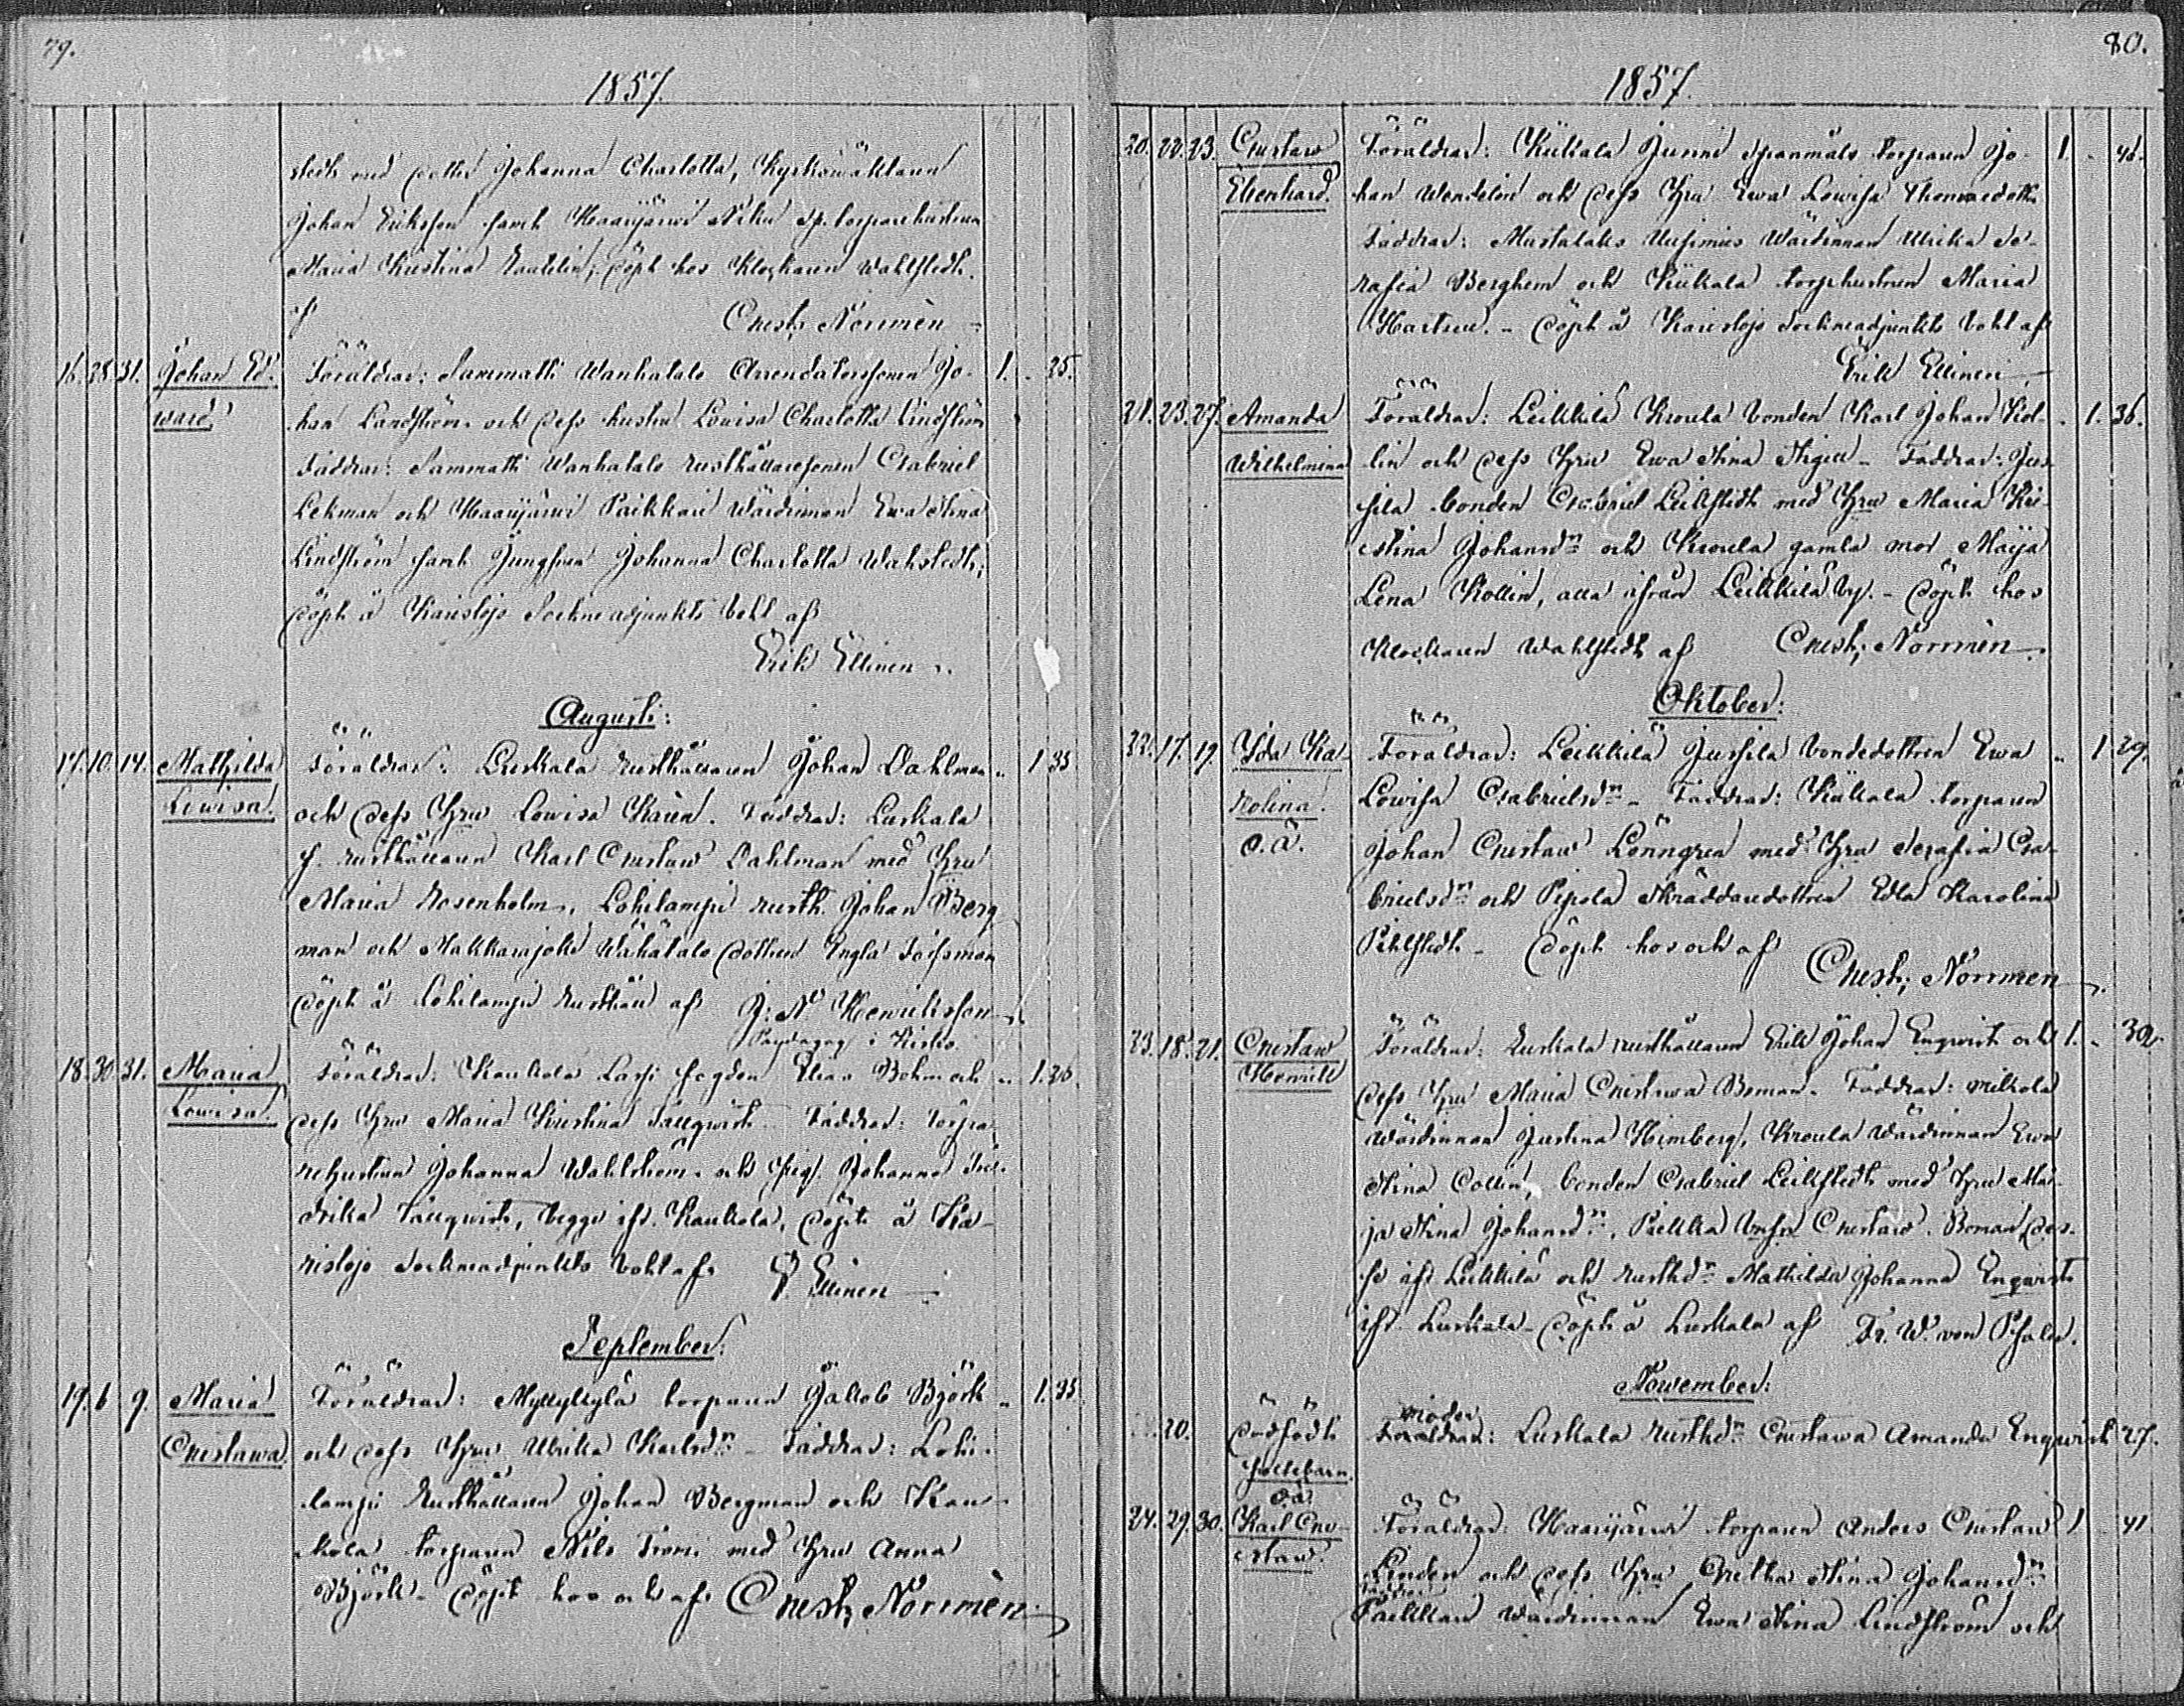 79.
1857.
stedt med dotter Johanna Charlotta, Kyrkowäktaren
Johan Eriksson samt Haarijärwi Niku sp. torparehustrun
Maria Kristina; döpt hos Klockaren Wahlstedt.
af
Gust: Norrmèn
16. 28. 31. Johan Ed- Föräldrar: Sammatti Wanhatalo Arrendatorssonen Jo- 1. - 25.
ward. han Landström och dess hustru Lowisa Charlotta Lindström
Faddrar: Sammatti Wanhatalo rusthållaresonen Gabriel
Lekman och Haarijärwi Paikkari Wärdinnan Ewa Stina
Lindström samt Jungfrun Johanna Charlotta Wahlstedt;
döpt å Karislojo Sockneadjunkts bohl af
Erik Ellinen
Augusti:
17. 10. 14. Mathilda Föräldrar: Luskala rusthållaren Johan Dahlman " 1 35
Lowisa. och dess Hru Lowisa Karèn. Faddrar: Luskala
f. rusthållaren Karl Gustaw Dahlman med Hru
Maria Rosenholm, Lohilampi rusth. Johan Berg
man och Makkarajoki Wähätalo dottren Engla Forssman
döpt å Lohilampi rusthåll af J: N Henriksson
Pædagog i Kisko.
18. 30 31. Maria Föräldrar: Kaukola Lassi fogden Elias Bohm och " 1. 26.
Lowisa. dess Hru Maria Kristina Tallqwist. Faddrar: torpa
rehustrun Johanna Wahlström och Pig. Johanna Fre-
drika Tallqwist, begge ifr. Kaukola, döpt å Ka-
rislojo Sockneadjunkts bohl af. E. Ellinen
September:
19. 6 9. Maria Föräldrar: Myllykylä torparen Jakob Björk " 1. 35
Gustawa. och dess Hru Ulrika Karlsdn. - Faddrar: Lohi-
lampi Rusthållaren Johan Bergman och Kau-
kola torparen Nils Fromi med Hru Anna
Björk. - döpt hos och af. Gust; Norrmèn.
80.
1857.
20. 22. 23. Gustaw Föräldrar: Kiikala Junni Spanmåls torparen Jo- 1. -
Ebenhard. han Wendelin och dess Hru Ewa Lowisa Thomasdottr.
Faddrar: Mustalaks Uusimies Wärdinnan Ulrika Se-
rafia Berghem och Kiikala torphustrun Maria
döpt å Karislojo Sockneadjunkts bohl af
Erik Ellinen
21. 23. 27. Amanda Föräldrar: Leikkilä Kroula bonden Karl Johan Kol- - 1. 36.
Wilhelmina lin och dess Hru Ewa Stina Stigell - Faddrar: Jus-
sila bonden Gabriel Leikstedt med Hru Maria Kri-
stina Johansdn och Kroula gamla mor Maija
Lena Kollin, alla ifrån Leikkilä by. - döpt hos
Klockaren Wahlstedt af Gust; Norrmèn.
Oktober:
22. 17. 19. Ida Ka- Föräldrar: Leikkilä Jussila bondedottren Ewa " 1 29.
rolina. Lowisa Gabrielsdn - Faddrar: Kiikala torparen
o. ä. Johan Gustaw Lönngren med Hru Serafia Ga-
brielsdn och Pipola Skräddaredottren Edla Karolina
Pihlstedt - döpt hos och af
Gust; Norrmen
23. 18. 21. Gustaw Föräldrar: Luskala rusthållaren Erik Johan Enqwist och 1. - 30.
Henrik dess Hru Maria Gustawa Boman. Faddrar: Mikola
Wärdinnan Justina Himberg, Kroula Wärdinnan Ewa
Stina Collin, bonden Gabriel Leikstedt med Hru Ma-
ja Stina Johansdn, Pietka Gustaw Boman des-
se ifr Leikkilä och rusthdn Mathilda Johanna Enqwist
ifr. Luskala - döpt å Luskala af Fr. W. von Pfaler.
Nowember:
20. dödfödt moder Föräldrar: Luskala rusthdn Gustawa Amanda Enqwist 27.
gossebarn.
o.ä.
24. 29. 30. Karl Gu- Föräldrar: Haarijärwi torparen Anders Gustaw 1 - 41
staw. Linden och dess Hru Gretha Stina Johansdn
Faddrar Paikkari Wärdinnan Ewa Stina Lindström och